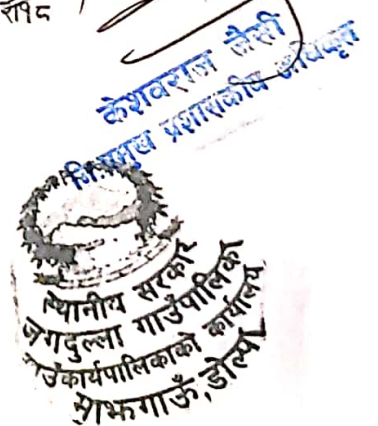 केशवराज जैसी
नि.प्रमुख प्रशासकीय अधिकृत
स्थानीय सरकार
जगदुल्ला गाउँपालिका
गाउँकार्यपालिकाको कार्यालय
माझगाउँ, डोल्पा